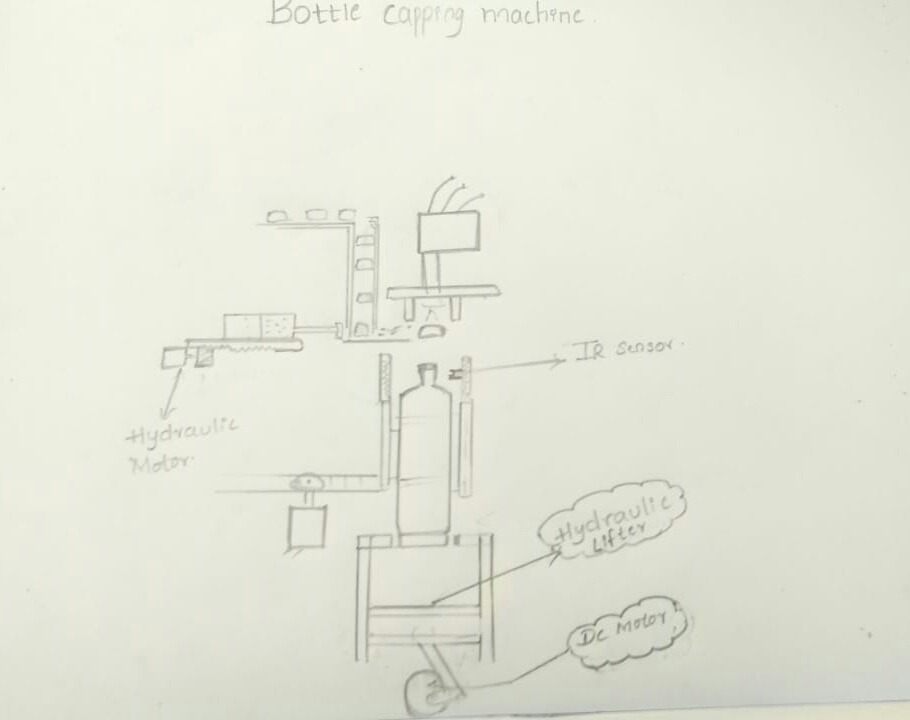 Bottle Capping machine.
IR Sensor.
Hydraulic
Motor.
Hydraulic
Lifter
DC Motor